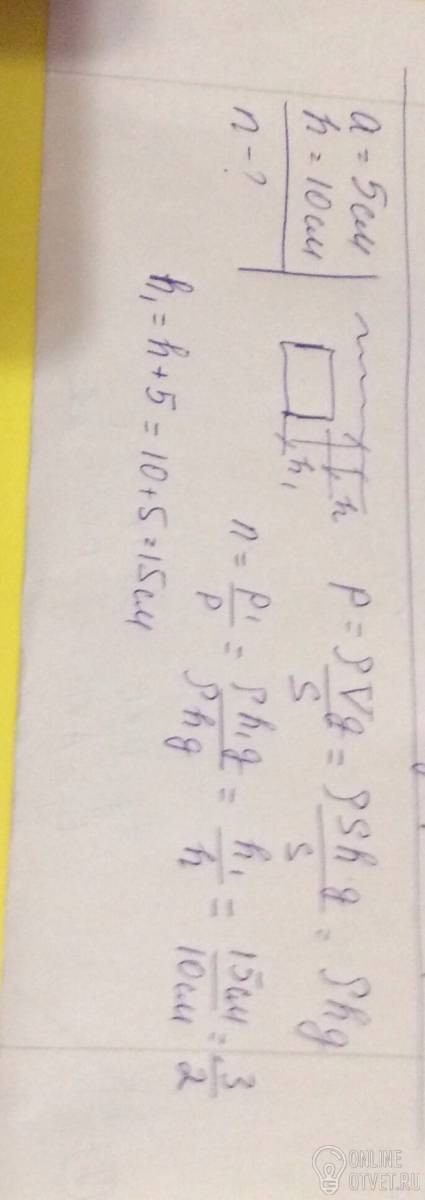 a = 5см
h = 10см
n - ?
h
h₁
p = ρVg/S = ρShg/S = ρhg
n = p₁/p = ρh₁g/ρhg = h₁/h = 15см/10см = 3/2
h₁ = h + 5 = 10 + 5 = 15см
ONLINE
OTVET.RU